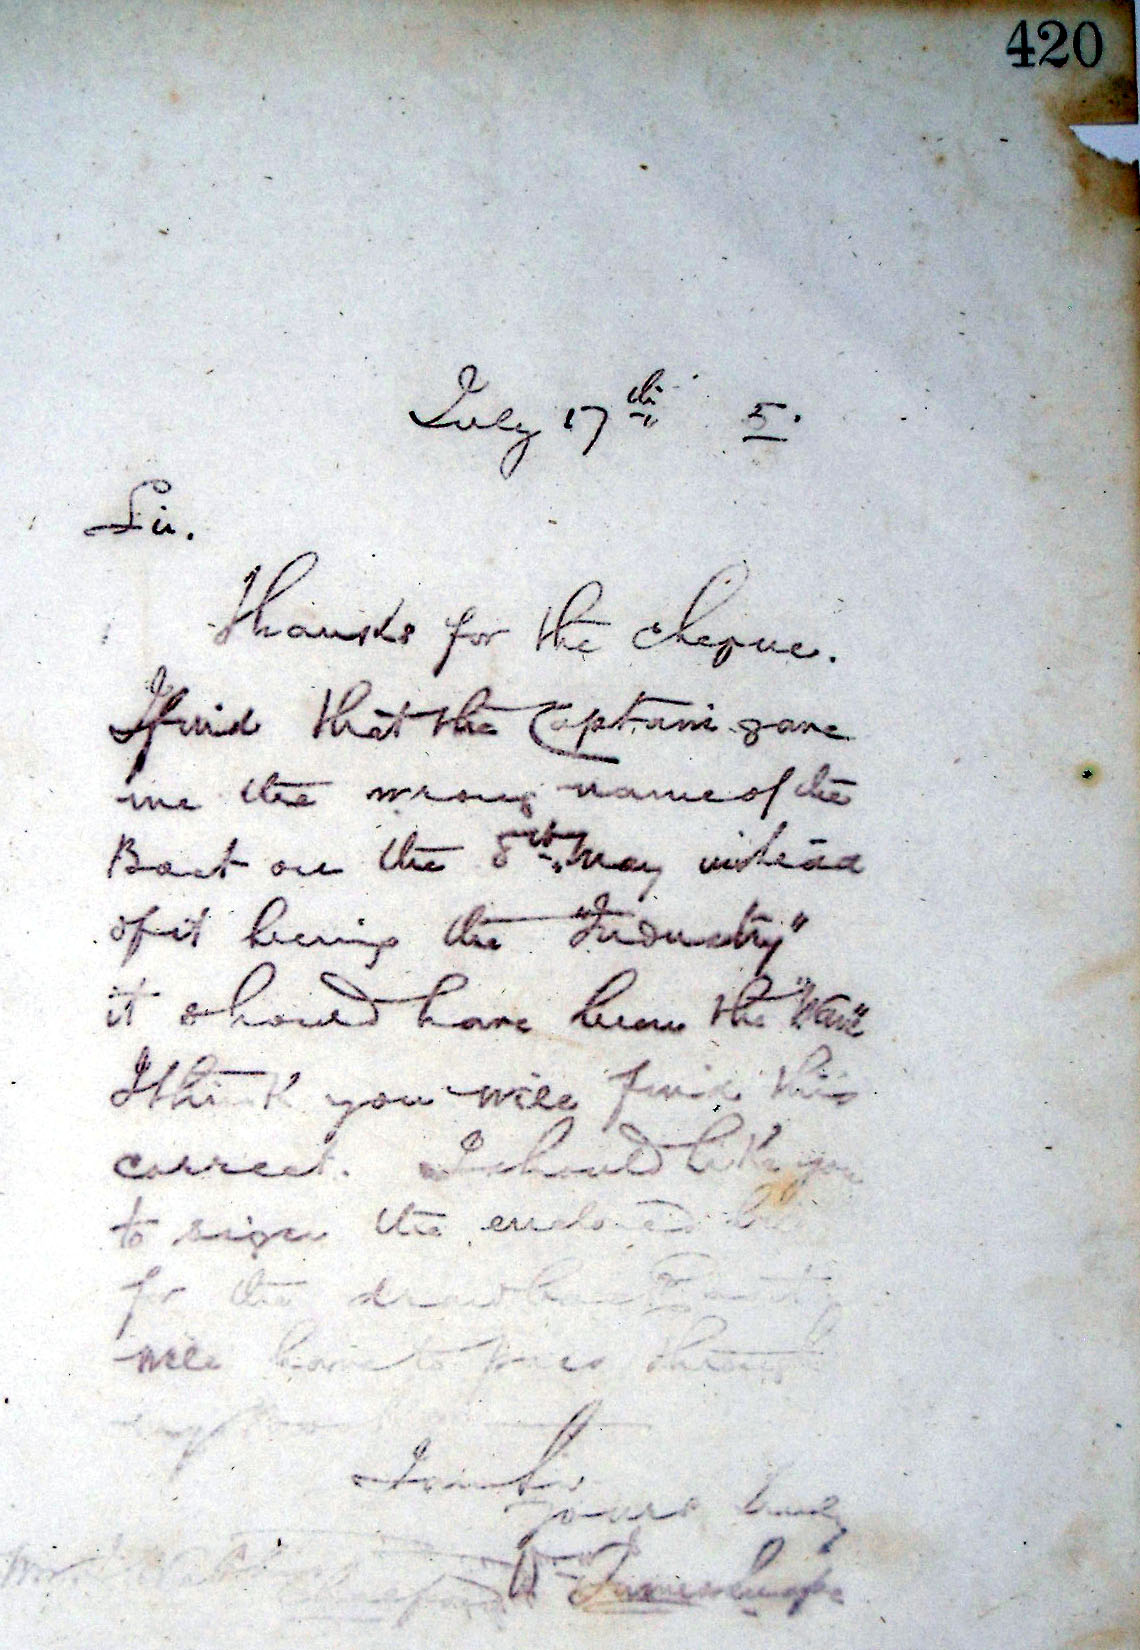 420
July 17th 5.
Sir.
Thanks for the cheque.
I find that the Captain gave
me the wrong name of the
Boat on the 8th May instead
of it being the "Industry"
it should have been the
I think you will find this
correct. I should like you
to sign the enclosed
for the drawback
will have to pass through
my
I am Sir
Yours truly